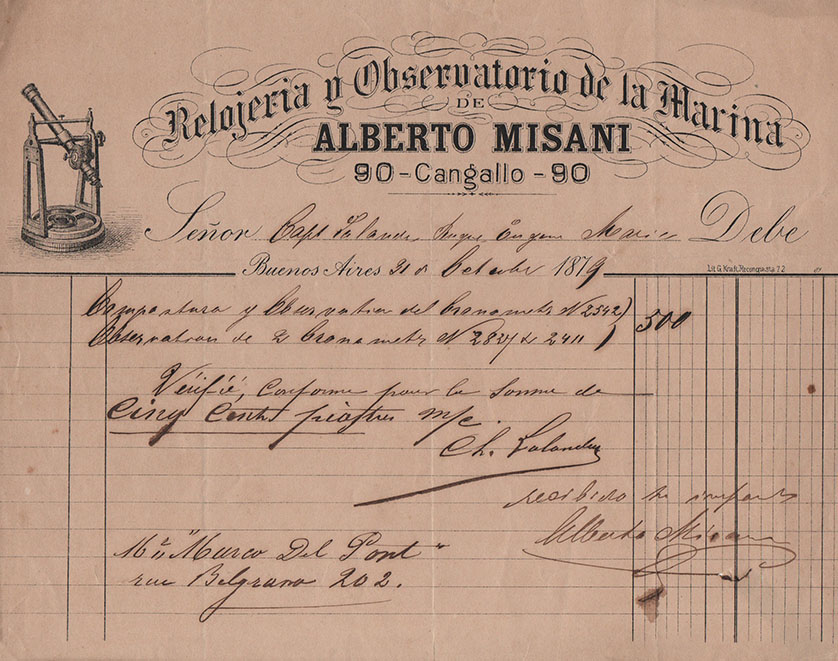 Relojeria y Observatorio de la Marina
DE
ALBERTO MISANI
90 - Cangallo - 90
Señor Capt Lalande Eugene Marie Debe
Buenos Aires 31 de Octubre 1879
Lit. G. Kraft, Reconquista 72
Compostura y Observation del Cronometro N 2542
Observation de 2 Cronometro N. 2827 & 2411 } 500
Vérifié, conforme pour la somme de
Cinq Cents piastres m/c.
Ch. Lalande
recibido
Alberto Misani
Mon "Marco Del Pont"
rue Belgrano 202.